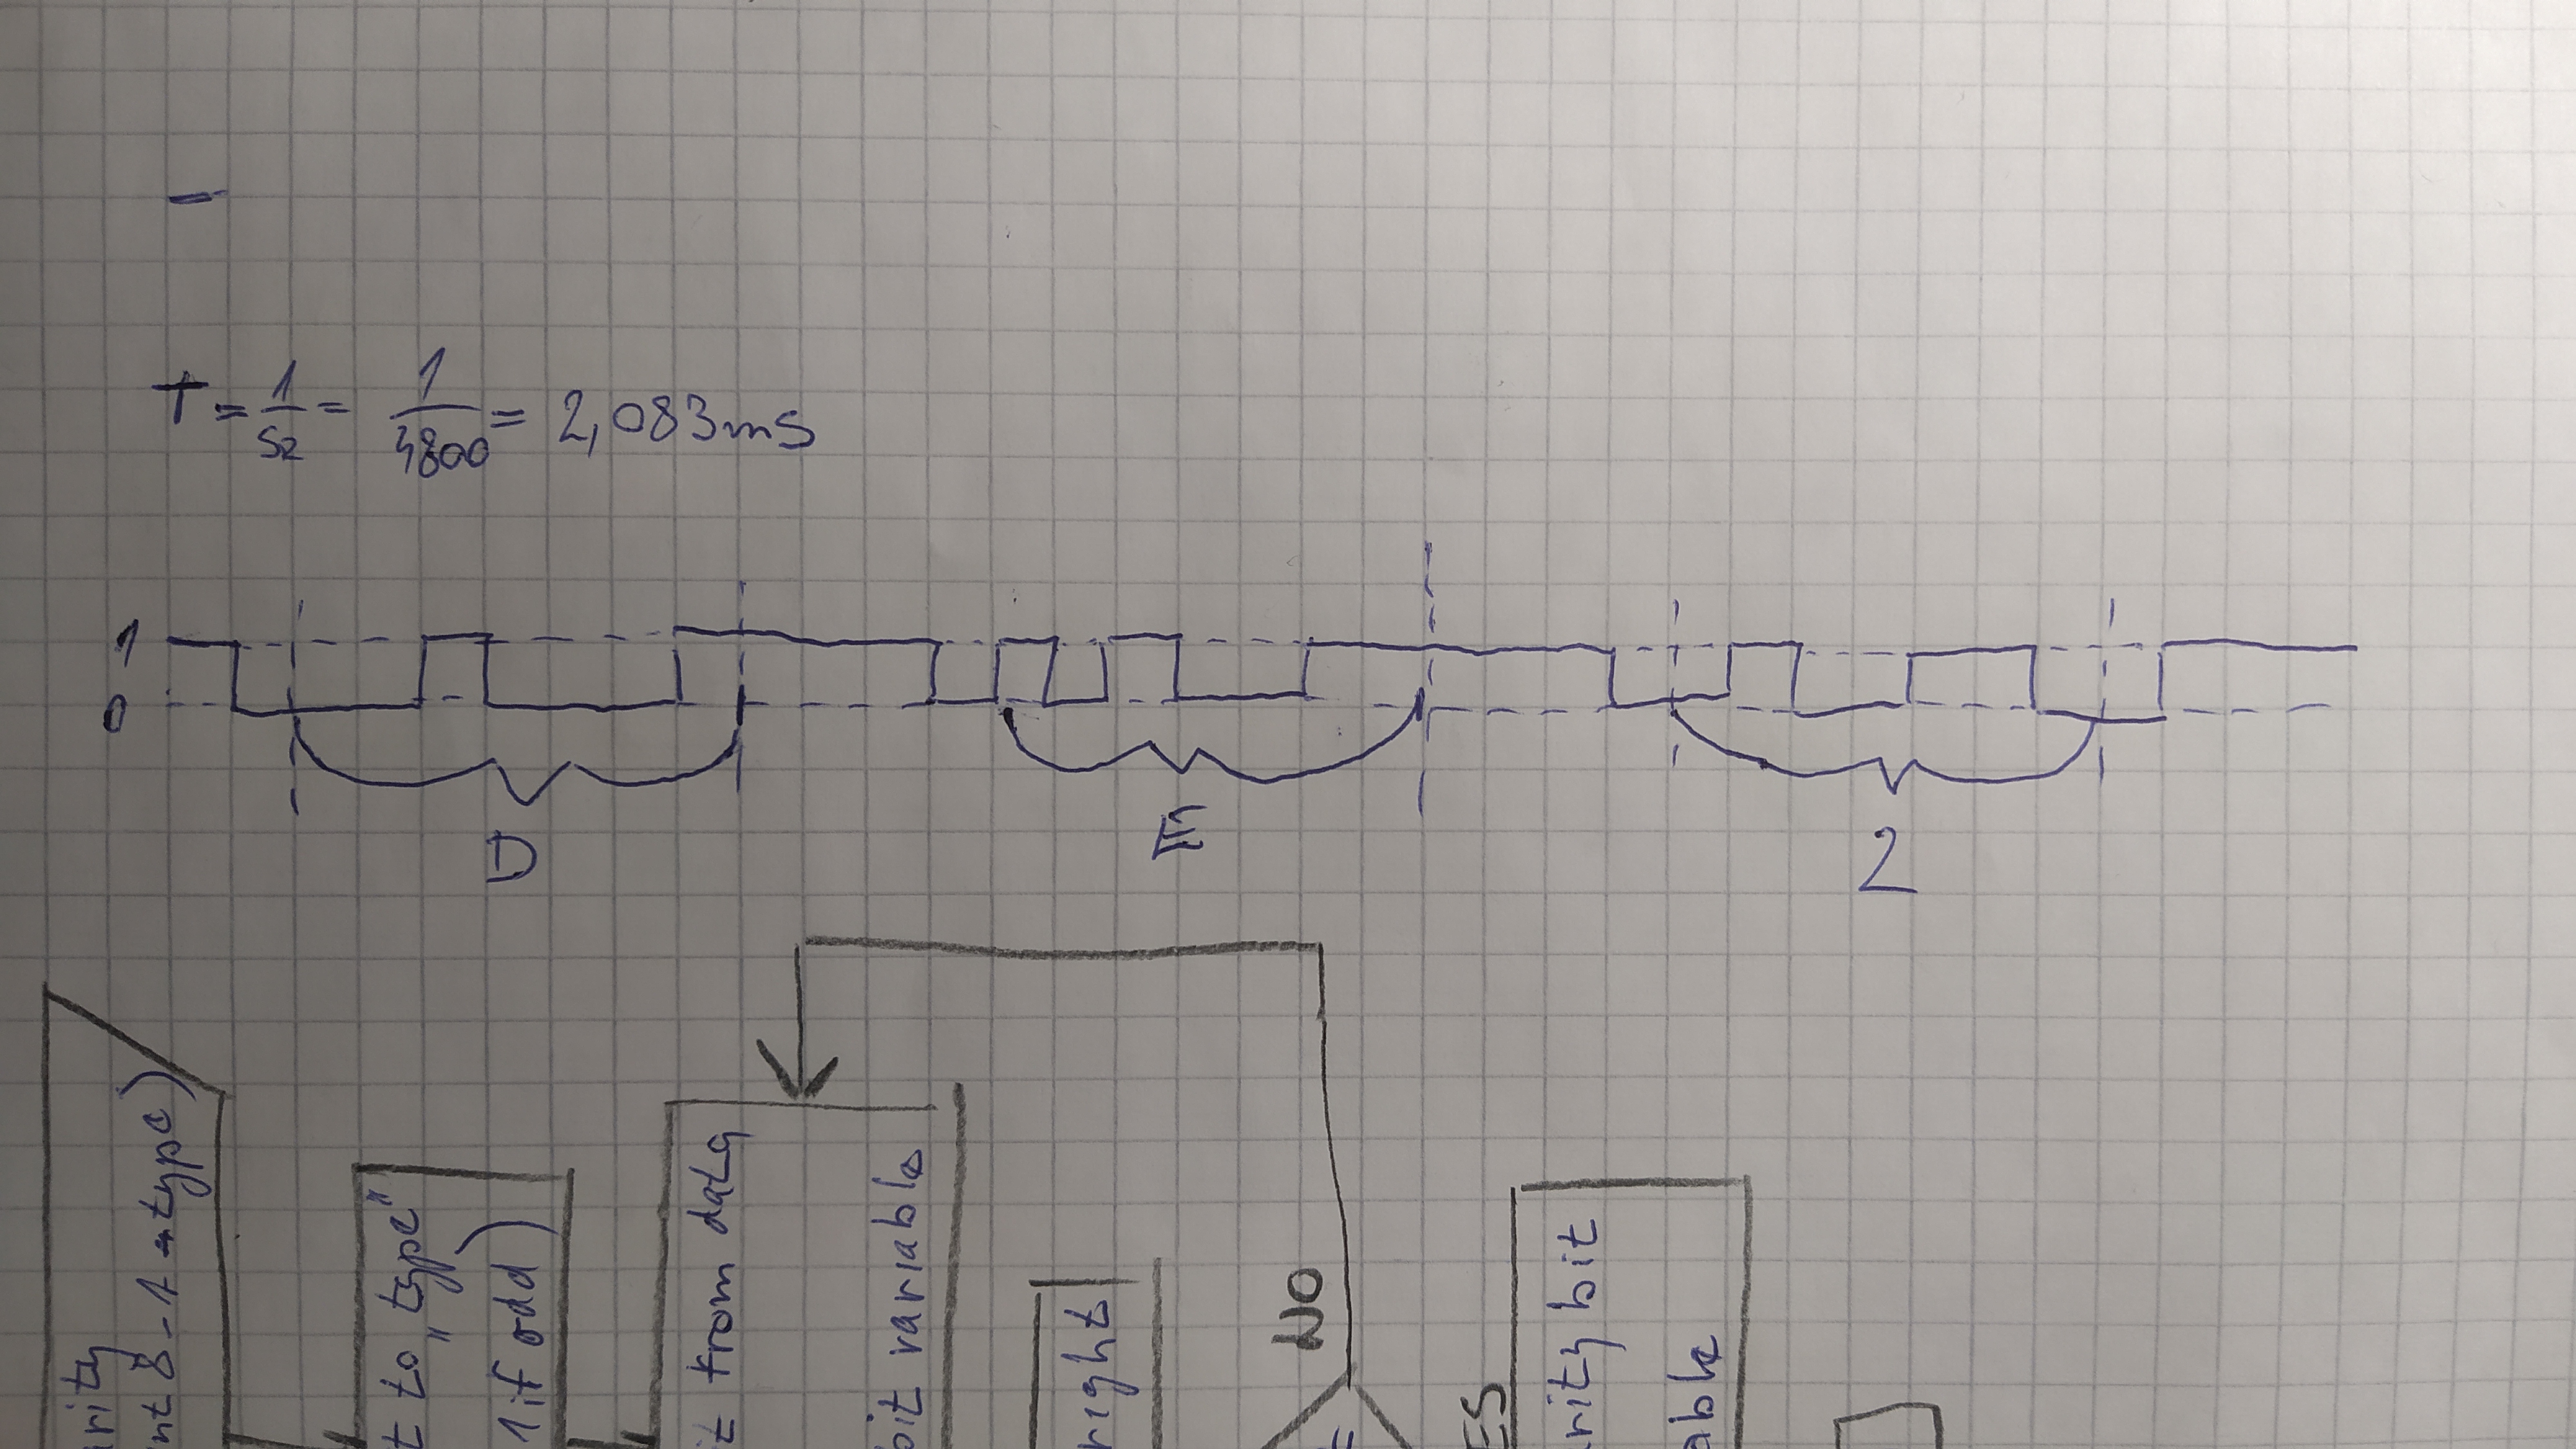 T = 1/s2 = 1/4800 = 2,083ms
1
0
D E 2
nt 8-1 → type)
t to „type"
1 if odd)
t from data
bit variable
right
NO
ES
rity bit
able
rity